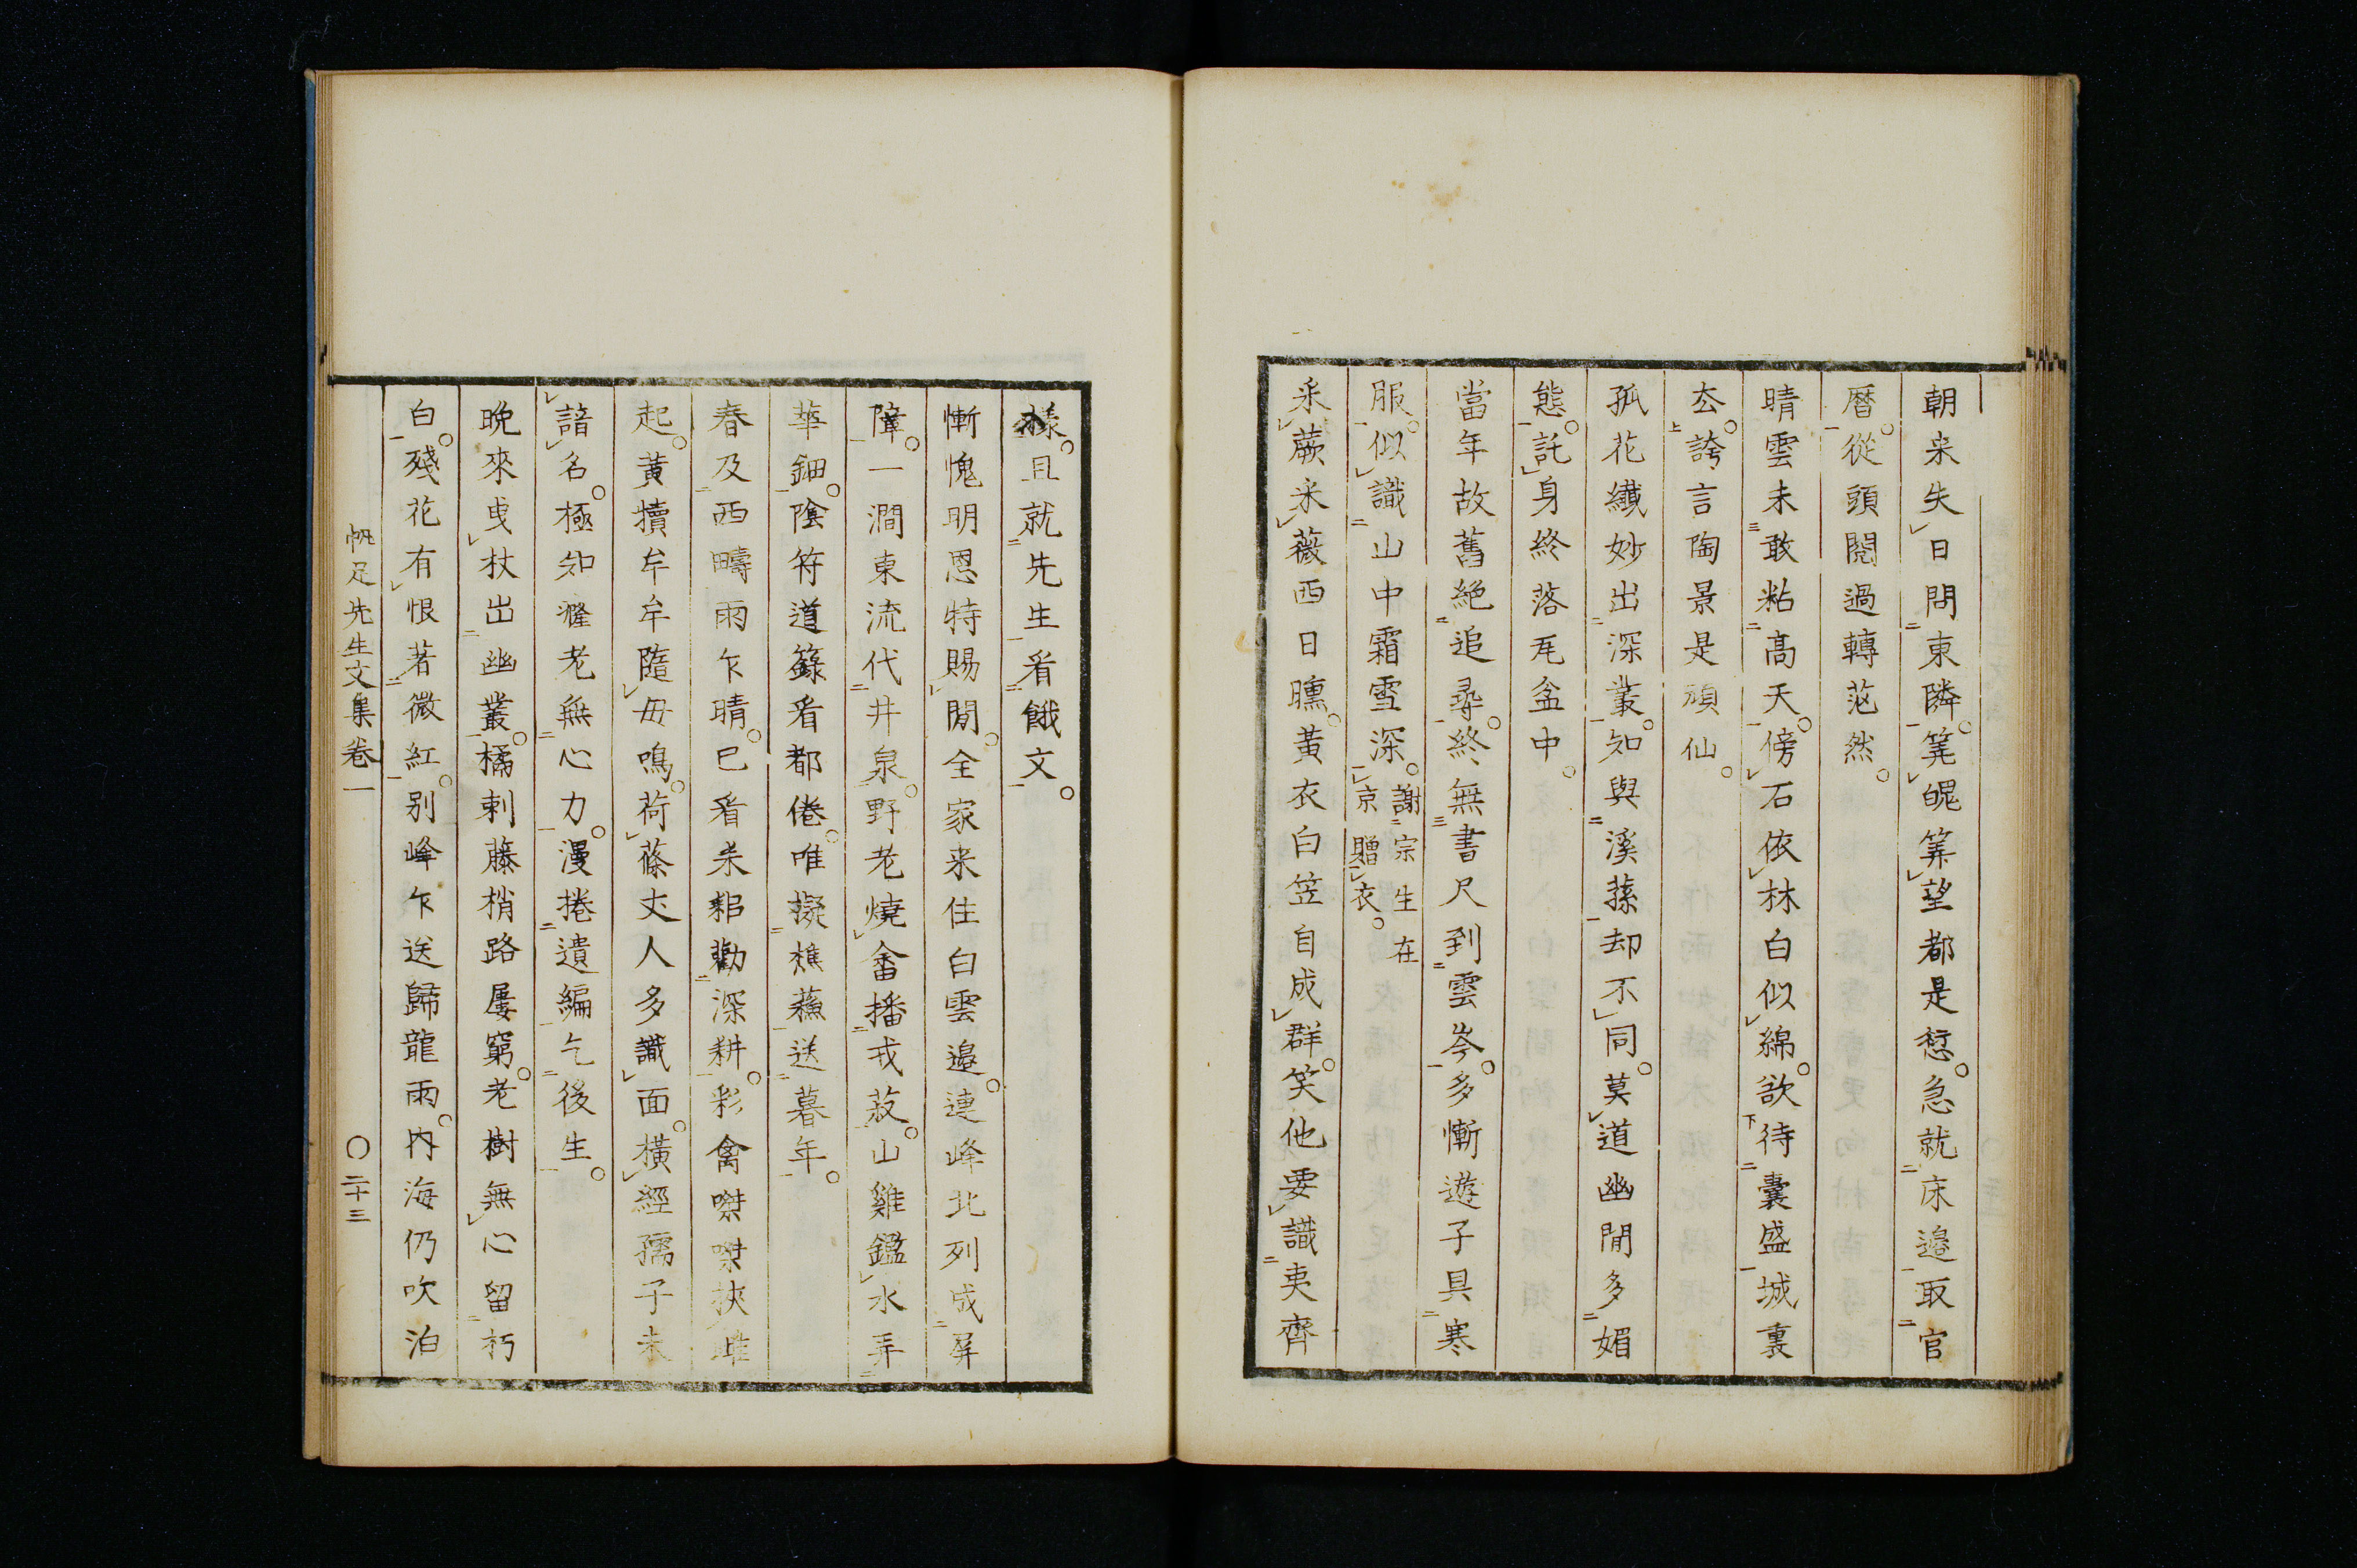 朝来失日問東隣。筦㫰筭望都是愆。急就床邉取官
暦。從頭閲過轉茫然。
晴雲未敢粘高天。傍石依林白似綿。欲待囊盛城裏
去。誇言陶景是頑仙。
孤花纎妙出深叢。知與溪蓀却不同。莫道幽閒多媚
態。託身終落瓦盆中。
當年故舊絶追尋。終無書尺到雲岑。多慚遊子具寒
服。似識山中霜雪深。謝宗生在
京贈衣。
釆蕨釆薇西日曛。黄衣白笠自成群。笑他要識夷齊
様。且就先生看餓文。
慚愧明恩特賜閒。全家来住白雲邉。連峰北列成屏
障。一澗東流代井泉。野老燒畲播戎菽。山雞鑑水弄
華鈿。陰符道籙看都倦。唯擬樵蘓送暮年。
春及西疇雨乍晴。已看米耜勸深耕。彩禽桀桀挾雌
起。黄犢牟牟隨母鳴。荷蓧丈人多識面。横經孺子未
諳名。極知癃老無心力。漫捲遺編乞後生。
晩來曳杖出幽叢。橘刺藤梢路屡窮。老樹無心留朽
白。殘花有恨著微紅。别峰乍送歸龍雨。内海仍吹泊
帆足先生文集卷一　〇二十三